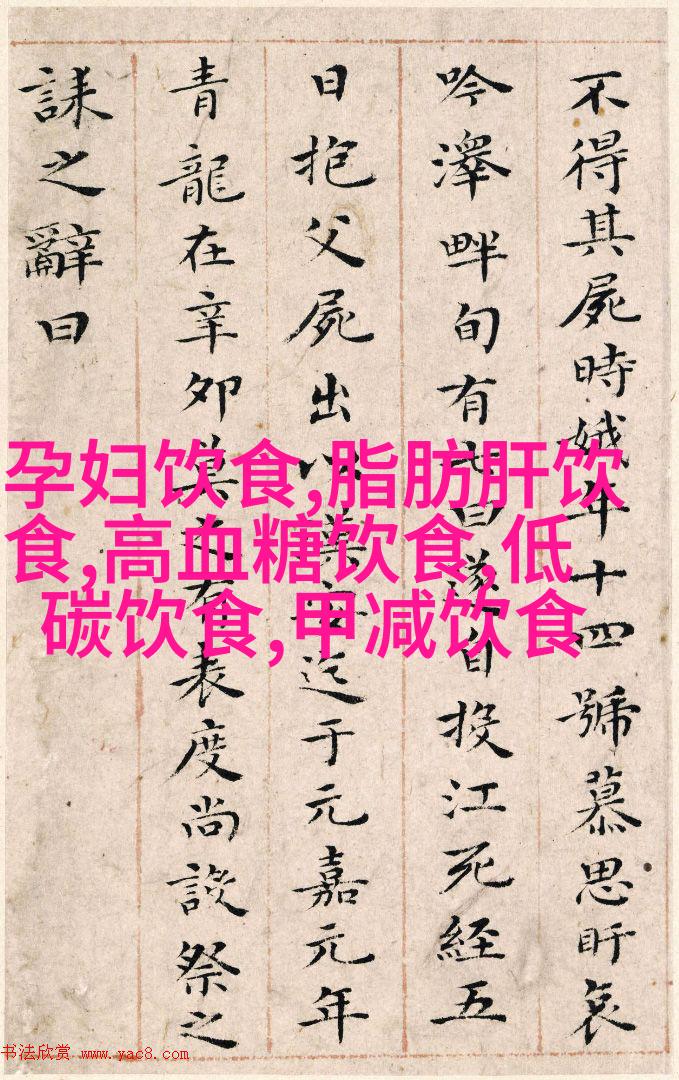 不得其屍時娥年十四號慕思盱哀
吟澤畔旬有七日遂自投江死經五
日抱父屍出以漢安迄于元嘉元年
青龍在辛卯莫之有表度尚設祭之
誄之辭曰
孕妇饮食,脂肪肝饮
食,高血糖饮食,低
碳饮食,甲减饮食
书法欣赏 www.yac8.com